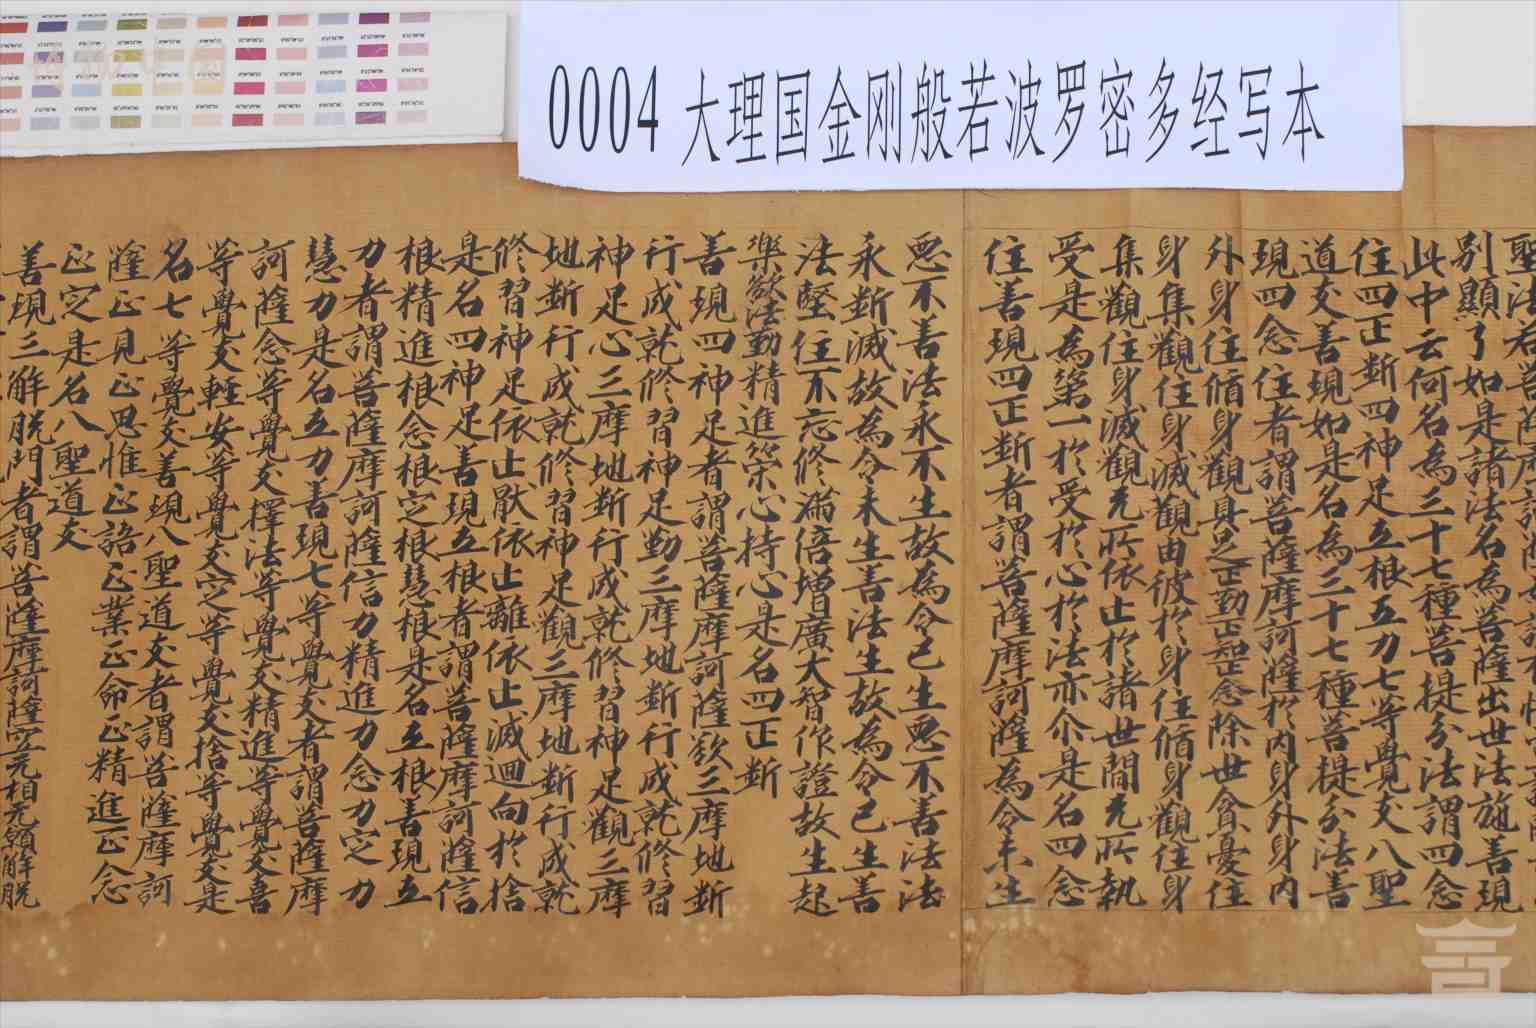 0004 大理国金刚般若波罗密多经写本
聖法若菩薩摩訶薩
別顯了如是諸法名為菩薩出世法施善現
此中云何名為三十七種菩提分法謂四念
住四正断四神足五根五力七等覺支八聖
道支善現如是名為三十七種菩提分法善
現四念住者謂菩薩摩訶薩於内身外身内
外身住循身觀具足正勤正知正念除世貪憂住
身集觀住身滅觀由彼於身住循身觀住身
集觀住身滅觀无所依止於諸世間无所執
受是為第一於受於心於法亦尒是名四念
住善現四正断者謂菩薩摩訶薩為令未生
悪不善法永不生故為令已生悪不善法法
永断滅故為令未生善法生故為令已生善
法堅住不忘修滿倍增廣大智作證故生起
樂欲法勤精進策心持心是名四正断
善現四神足者謂菩薩摩訶薩欲三摩地断
行成就修習神足勤三摩地断行成就修習
神足心三摩地断行成就修習神足觀三摩
地断行成就修習神足觀三摩地断行成就
修習神足依止猒依止離依止滅迴向於捨
是名四神足善現五根者謂菩薩摩訶薩信
根精進根念根定根慧根是名五根善現五
力者謂菩薩摩訶薩信力精進力念力定力
慧力是名五力善現七等覺支者謂菩薩摩
訶薩念等覺支擇法等覺支精進等覺支喜
等覺支輕安等覺支定等覺支捨等覺支是
名七等覺支善現八聖道支者謂菩薩摩訶
薩正見正思惟正語正業正命正精進正念
正定是名八聖道支
善現三解脱門者謂菩薩摩訶薩空无相无願解脱